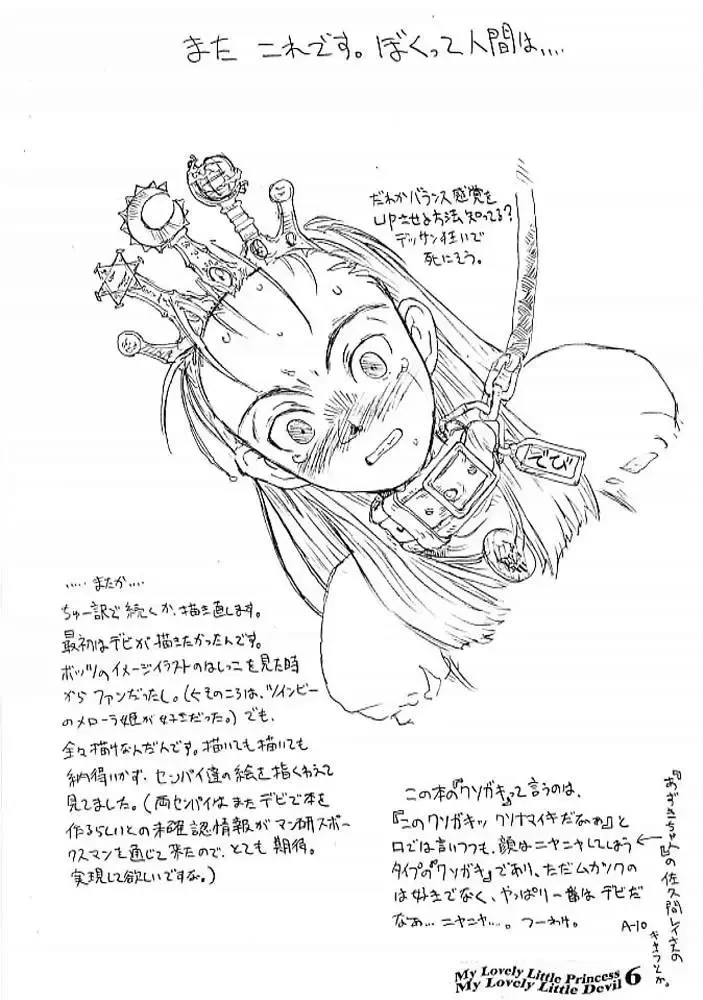 また これです。ぼくって人間は....
だれかバランス感覚を
UPさせる方法知ってる?
デッサン狂いで
死にそう。
でび
..... またか....
ちゅー訳で続くか、描き直します。
最初はデビが描きたかったんです。
ボッツのイメージイラストのはしっこを見た時
からファンだったし。(そのころは、ツインビー
のメローラ姫が好きだった。)でも、
全々描けなんだんです。描いても描いても
納得いかず、センパイ達の絵を指くわえて
見てました。(両センパイはまたデビで本を
作るらしいとの未確認情報がマン研スポー
クスマンを通じて来たので、とても期待。
実現して欲しいですな。)
この本の『クソガキ』って言うのは、
『このクソガキッ クソナマイキだなぁ』と
口では言いつつも、顔はニヤニヤしてしまう
タイプの『クソガキ』であり、ただムカツクの
は好きでなく、やっぱり一番は デビだ
なぁ... ニヤニヤ...。つーわけ。
A-10
『あずきちゃん』の佐久間レイさんの
My Lovely Little Princess
My Lovely Little Devil 6